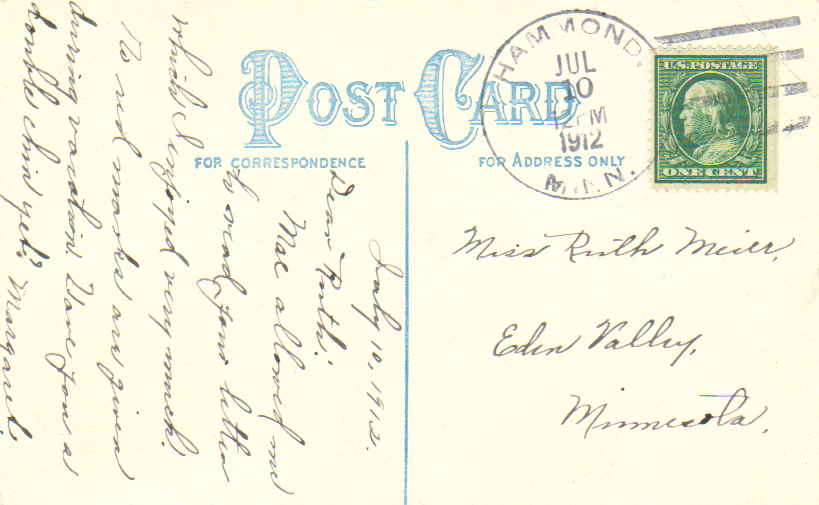 POST CARD
FOR CORRESPONDENCE
FOR ADDRESS ONLY
HAMMOND.
JUL
10
12 PM
1912
MINN.
U.S. POSTAGE
ONE CENT
July 10, 1912.
Dear Ruth:
Mae allowed me
to read your letter
which I enjoyed very much.
No red marks are given
during vacation. Have you a
double chin yet? Margaret.
Miss Ruth Meier,
Eden Valley,
Minnesota.